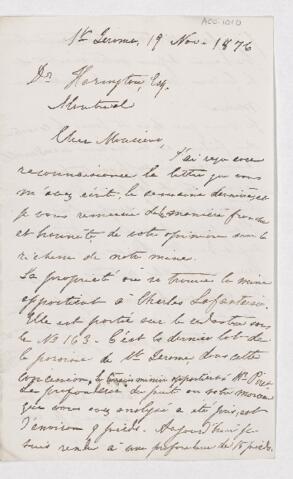 ACC-1010
St Jerome, 19 Nov. 1876
Dr Harington, Esq.
Montreal
Cher Monsieur,
J'ai reçu avec
reconnaissance la lettre que vous
m'avez écrit, la semaine dernière, et
je vous remercie de la manière franche
et honnête de votre opinion sur la
richesse de notre mine.
La propriété où se trouve la mine
appartient à Charles
Elle est portée sur le cadastre sous
le No 163. C'est le dernier lot de
la paroisse de St Jerome, dans cette
concession, le terrain minier appartient à Mr
La profondeur du puit où votre morceau
que vous avez analysé a été pris, est
d'environ 9 pieds. Aujourd'hui je
suis rendu à une profondeur de 15 pieds.